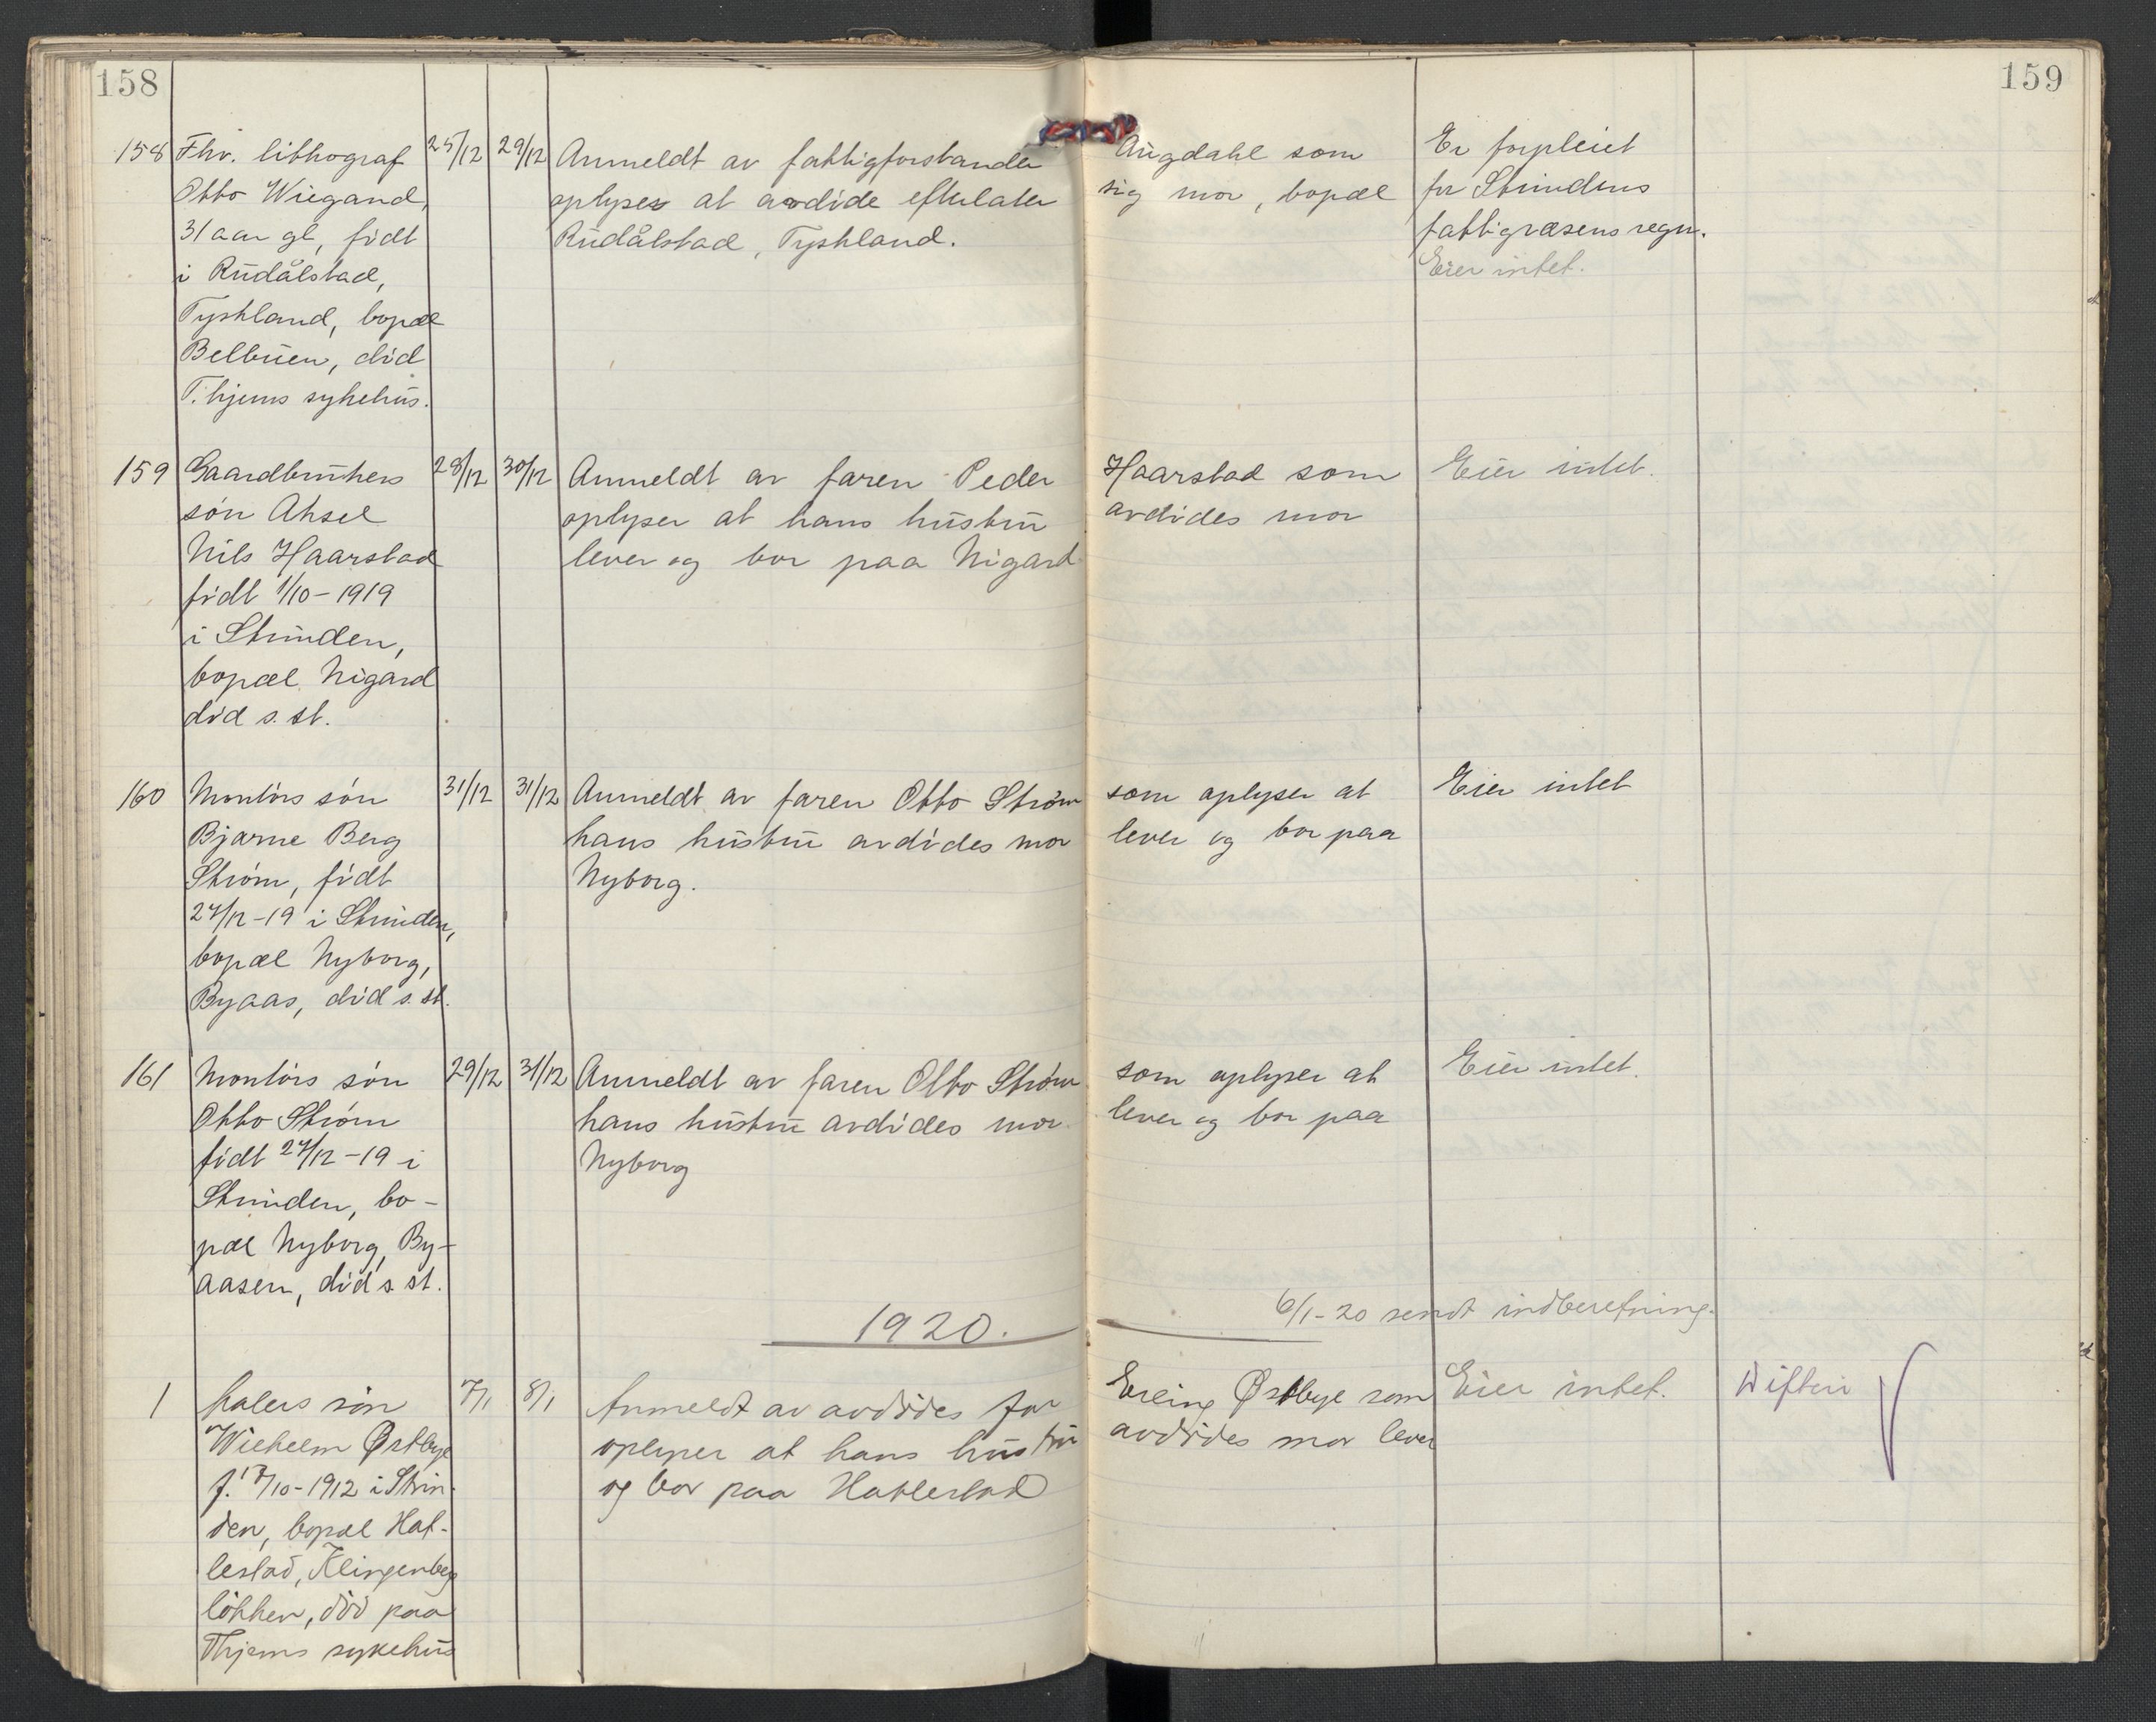 158
159
158 Fhv. lithograf 25/12 29/12 Anmeldt av fattigforstander Augdahl som Er forpleiet
Otto Wiegand, oplyses at avdøde efterlater sig mor, bopæl for Strindens
31 aar gl, født Rudålstad, Tyskland. fattigvæsens regn.
i Rudålstad, Eier intet.
Tyskland, bopæl
Belbuen, død
T.hjems sykehus.
159 Gaardbrukers 28/12 30/12 Anmeldt av faren Peder Haarstad som Eier intet.
søn Aksel oplyser at hans hustru avdødes mor
Nils Haarstad lever og bor paa Nigard
født 1/10-1919
i Strinden,
bopæl Nigard
død s. st.
160 Montørs søn 31/12 31/12 Anmeldt av faren Otto Strøm som oplyser at Eier intet
Bjarne Berg hans hustru avdødes mor lever og bor paa
Strøm, født Nyborg.
27/12-19 i Strinden,
bopæl Nyborg,
Byaas, død s. st.
161 Montørs søn 29/12 31/12 Anmeldt av faren Otto Strøm som oplyser at Eier intet.
Otto Strøm hans hustru avdødes mor lever og bor paa
født 27/12-19 i Nyborg
Strinden, bo-
pæl Nyborg, By-
aasen, død s. st.
1920. 6/1-20 sendt indberetning.
1 Malers søn 7/1 8/1 Anmeldt av avdødes far Erling Østbye som Eier intet. Difteri
Wilhelm Østbye oplyser at hans hustru avdødes mor lever
f. 17/10-1912 i Strin- og bor paa Hatlestad
den, bopæl Hat-
lestad, Klingenberg
løkken, død paa
Thjems sykehus